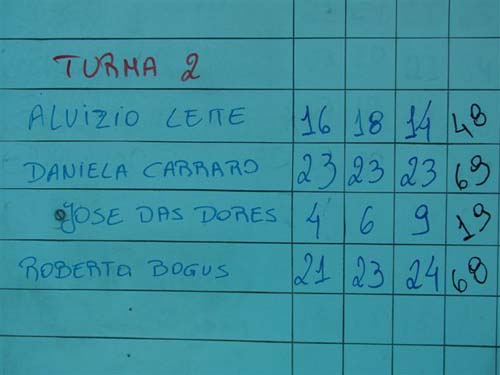 TURMA 2
ALVIZIO LEITE 16 18 14 48
DANIELA CARRARO 23 23 23 69
JOSE DAS DORES 4 6 9 19
ROBERTA BOGUS 21 23 24 68